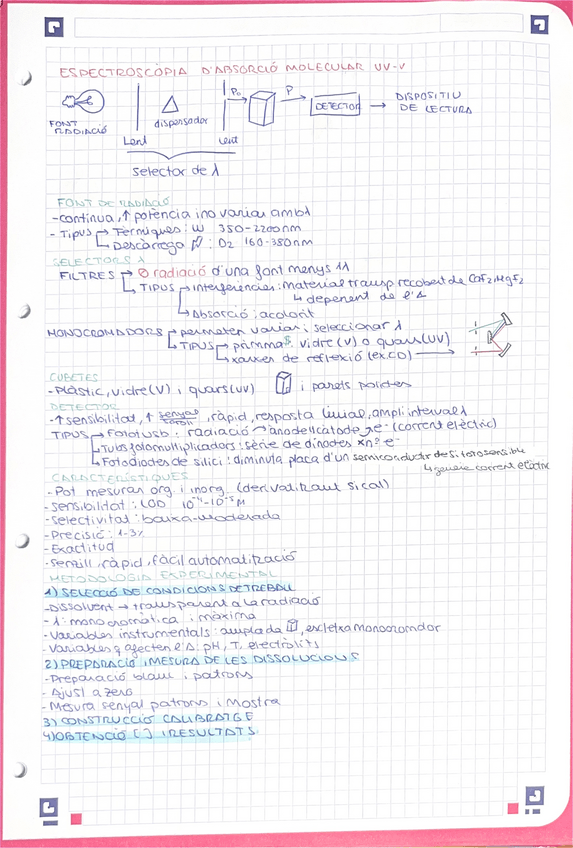 ESPECTROSCÒPIA D'ABSORCIÓ MOLECULAR UV-V
FONT RADIACIÓ
Lent
dispensador
Lent
P₀
P
DETECTOR → DISPOSITIU DE LECTURA
selector de λ
FONT DE RADIACIÓ
- contínua, ↑ potència i no varias amb λ
- Tipus → Tèrmiques: W 350-2200nm
↳ Descàrrega : D2 160-350nm
SELECTORS λ
FILTRES → ∅ radiació d'una font menys 1λ
↳ TIPUS → interferències: material transp recobert de CaF2, MgF2
↳ depenent de l'Δ
↳ Absorció: acolorit
MONOCROMADORS → permeten variar i seleccionar λ
↳ TIPUS → prismas: vidre (V) o quars (UV)
↳ xarxes de reflexió (ex. CD) →
CUBETES
- Plàstic, vidre (V) i quars (UV) i parets polides
DETECTOR
- ↑ sensibilitat, ↑ senyal/soroll, ràpid, resposta lineal, ampli interval λ
TIPUS → Fototub: radiació → ànode/càtode xe⁻ (corrent elèctric)
↳ Tubs fotomultiplicadors: sèrie de dínodes xnº e⁻
↳ Fotodíodes de silici: diminuta placa d'un semiconductor de Si fotosensible
↳ genera corrent elèctric
CARACTERÍSTIQUES
- Pot mesurar org. i inorg. (derivatitzant si cal)
- Sensibilitat: LOD 10⁻⁴-10⁻⁵ M
- Selectivitat: baixa-moderada
- Precisió: 1-3%
- Exactitud
- Senzill, ràpid, fàcil automatització
METODOLOGIA EXPERIMENTAL
1) SELECCIÓ DE CONDICIONS DE TREBALL
- Dissolvent → transparent a la radiació
- λ: monocromàtica i màxima
- Variables instrumentals: amplada , escletxa monocromador
- Variables q afecten l'Δ: pH, T, electròlits
2) PREPARACIÓ I MESURA DE LES DISSOLUCIONS
- Preparació blanc i patrons
- Ajust a zero
- Mesura senyal patrons i mostra
3) CONSTRUCCIÓ CALIBRATGE
4) OBTENCIÓ [ ] I RESULTATS